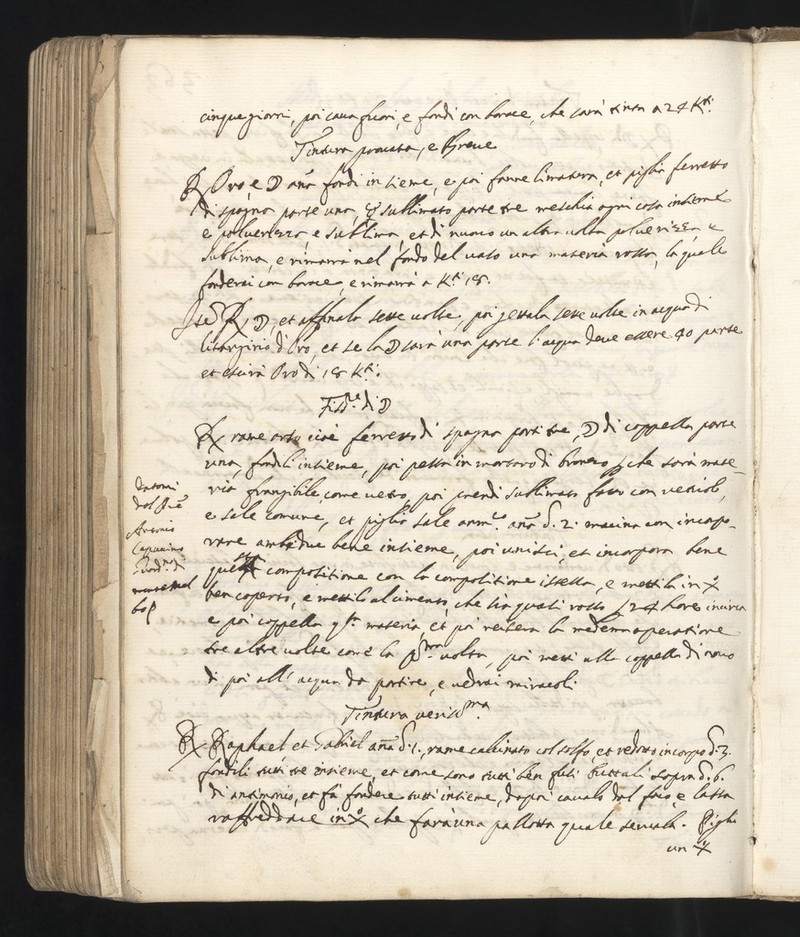 cinque giorni, poi caua fuori, e fondi con borace, che sarà tinta a 24 K.ti
Tintura prouata, e breue
℞ Oro, e ☽ anã fondi insieme, e poi fanne limatura, et piglia ferretto
di spagna parte una, ☿ sullimato parte tre meschia ogni cosa insieme
e poluerizza e sullima, et di nuouo un altra uolta poluerizza e
sullima, e rimarrà nel fondo del uaso una materia rossa, la quale
fonderai con borace, e rimarrà a K.ti 18.
℞ ☽, et affinala sette uolte, poi gettala sette uolte in acqua di
litargirio d'Oro, et se la ☽ sarà una parte l'acqua deue essere 40 parte
et escirà Oro di 18 K.ti
di ☽
℞ rame arso cioè ferretto di spagna parti tre, ☽ di coppella parte
una, fondili insieme, poi pesta in mortaro di bronzo che sarà mate-
ria frangibile come uetro, poi prendi sullimato fatto con uetriolo,
e sale comune, et piglia sale arm.o anã 2. macina con, incorpo-
rare ambidue bene insieme, poi unisci, et incorpora bene
questa compositione con la compositione istessa, e mettila in
ben coperto, e mettilo al cimento, che sia quasi rosso 24 hore incirca
e poi coppella materia et poi reitera la medema operatione
tre altre uolte come la p.ma uolta, poi metti alla coppella di nouo
di poi all'acqua da partire, e uedrai miracoli.
datomi
dal
Capucino
Tintura veriss.ma
℞ Raphael et Gabriel anã 1., rame calcinato col solfo, et redotto in corpo 3.
fondili tutti tre insieme, et come sono tutti ben fusi buttali sopra 6.
di antimonio, et fà fondere tutti insieme, dapoi caualo dal foco, e lassa
raffreddare in che farà una pallotta quale seruala. Piglia
un